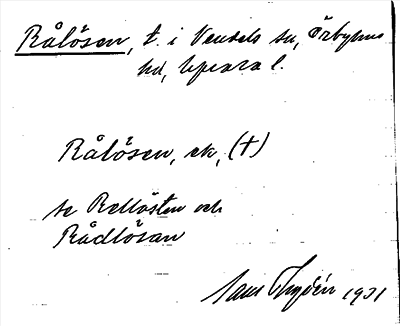 Rålösen, t. i Vendels sn, Örbyhus
hd, Uppsala l.
Rålösen, ek, (†)
se Rellösten och
Rådlösan
Thydén 1931